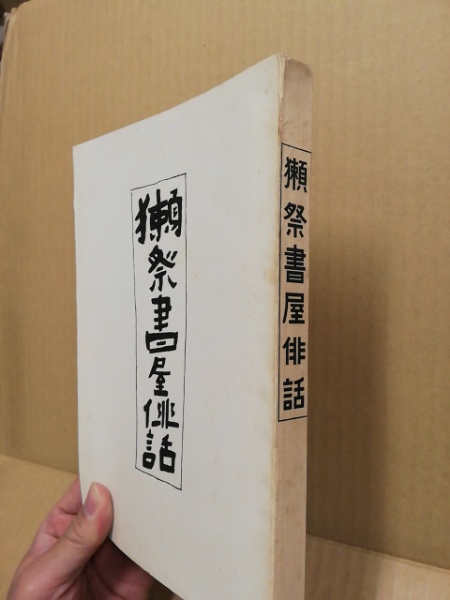 獺祭書屋俳話
獺祭書屋俳話